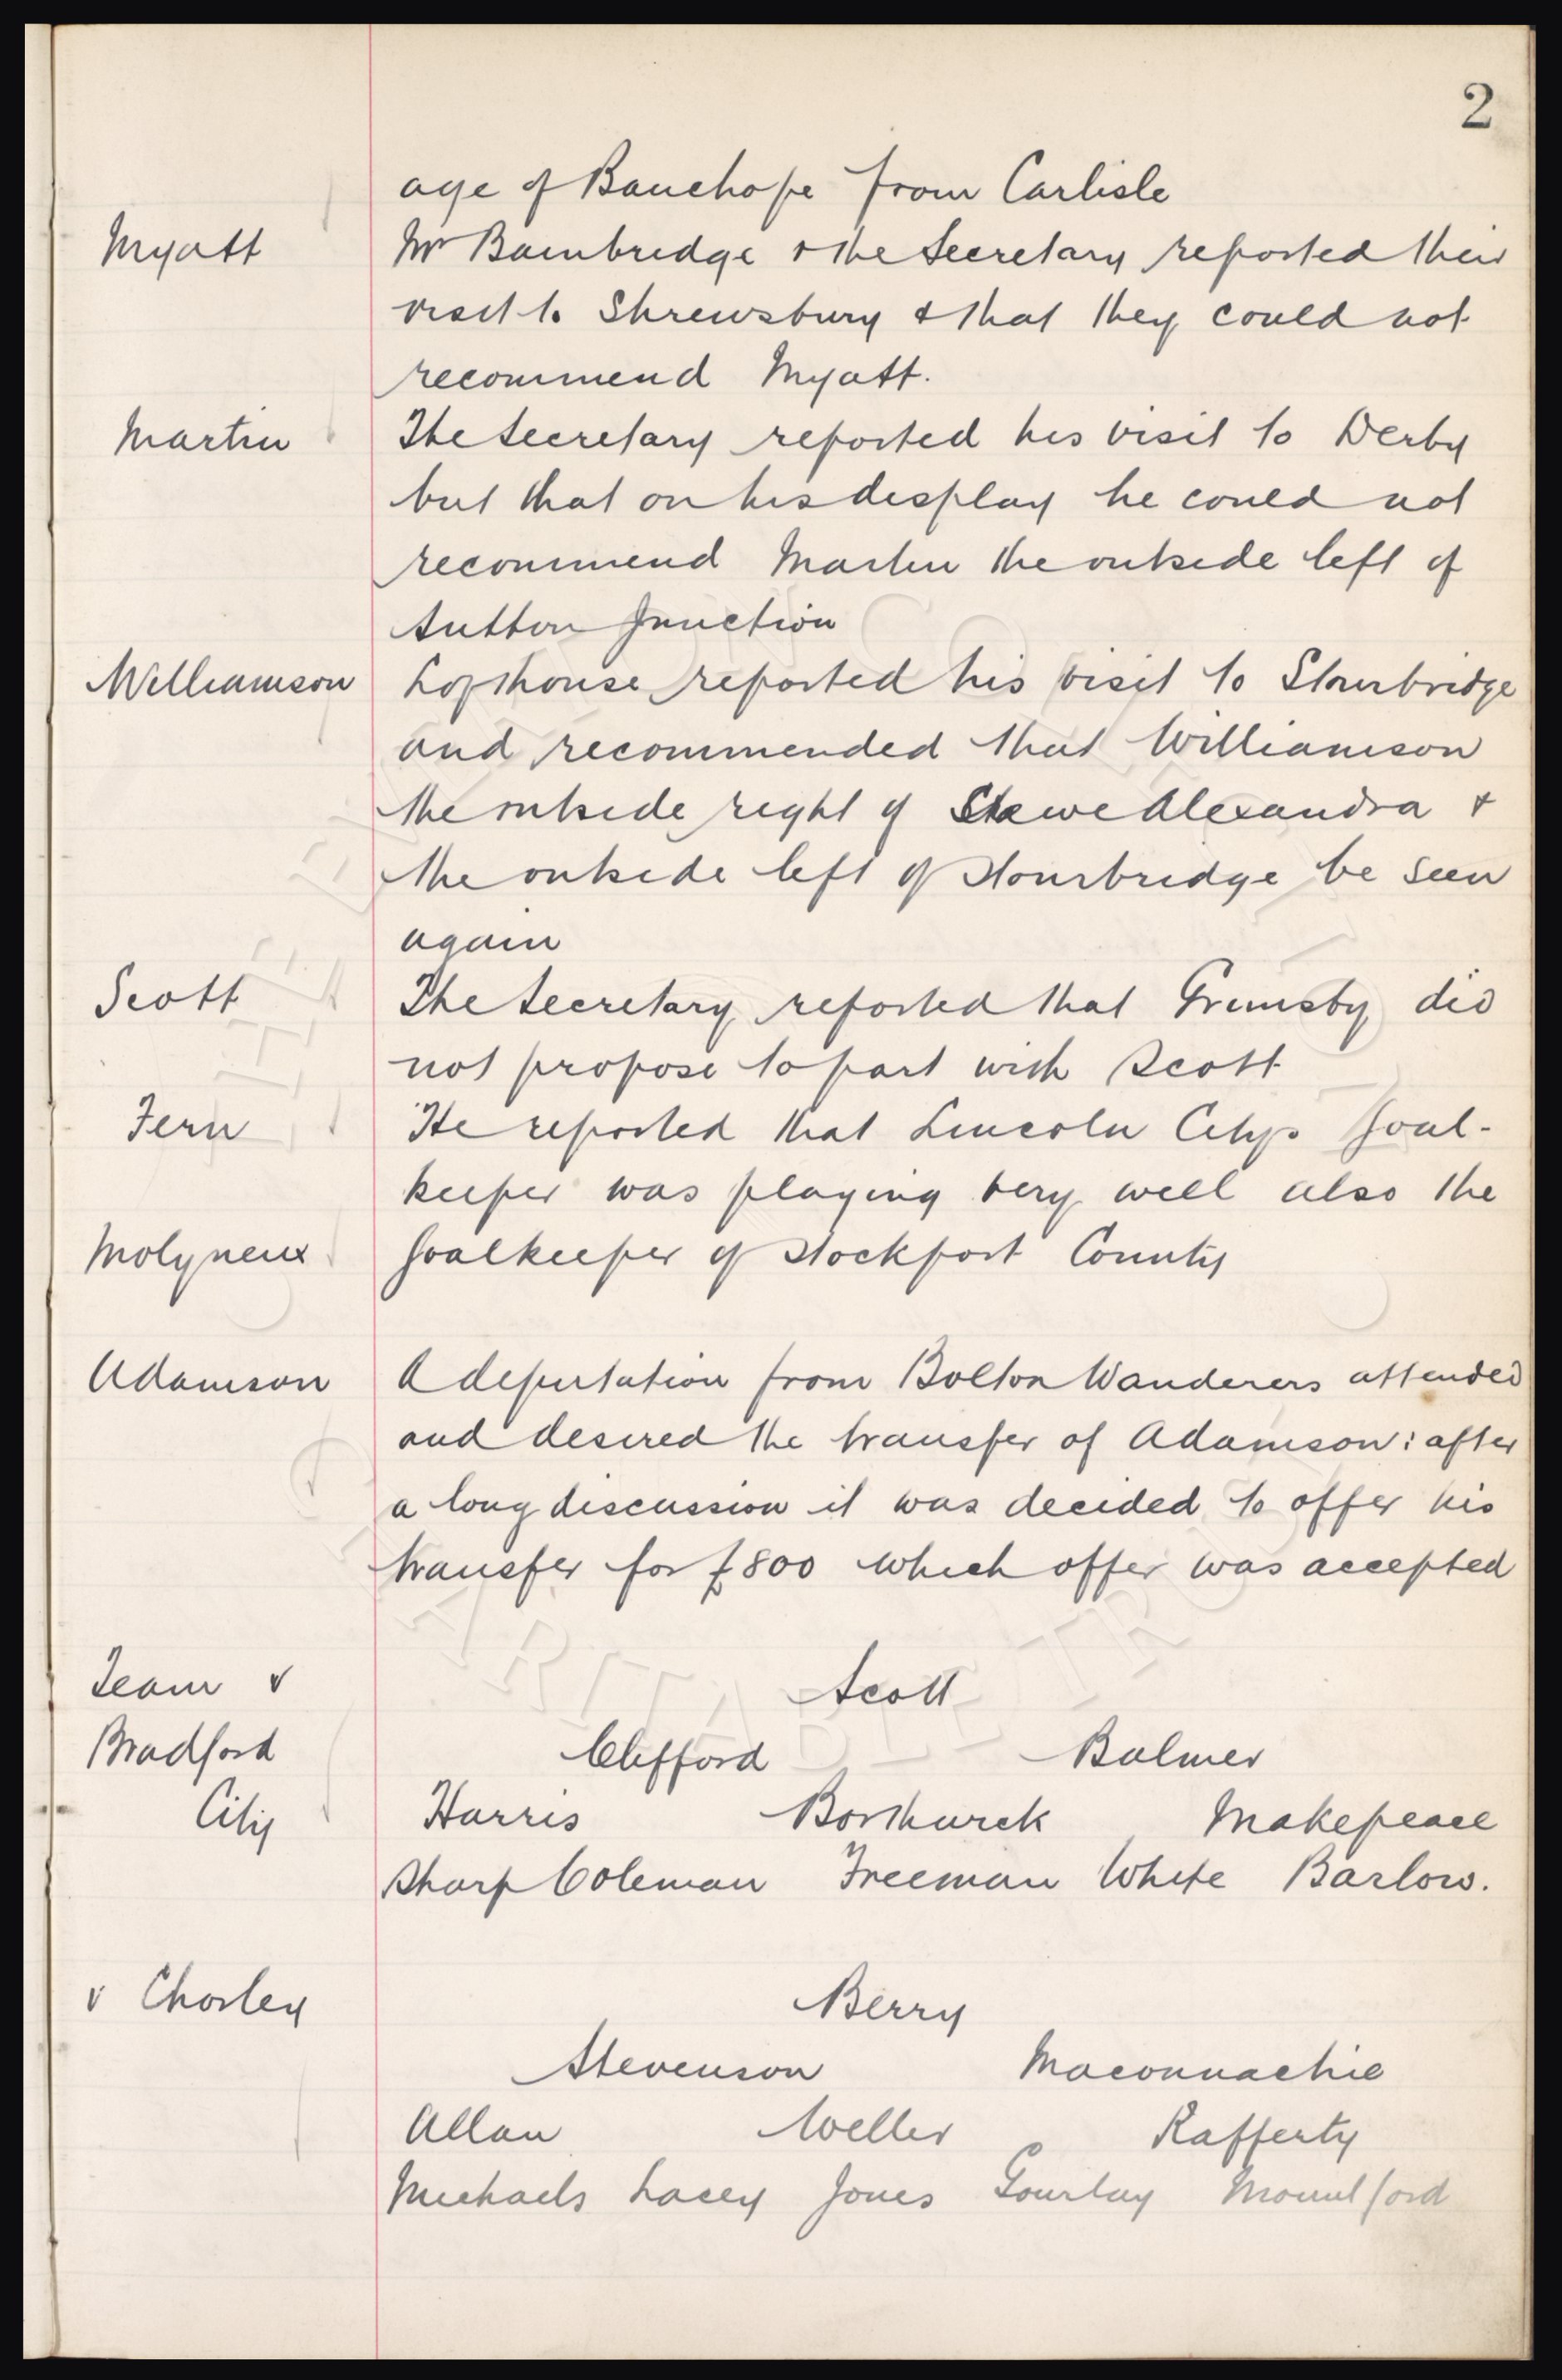 2
age of Bauchope from Carlisle
Myatt Mr Bainbridge & the Secretary reported their
visit to Shrewsbury & that they could not
recommend Myatt.
Martin The Secretary reported his visit to Derby
but that on his display he could not
recommend Martin the outside left of
Sutton Junction
Williamson Lofthouse reported his visit to Stourbridge
and recommended that Williamson
the outside right of Crewe Alexandra &
the outside left of Stourbridge be seen
again
Scott The Secretary reported that Grimsby did
not propose to part with Scott
Fern He reported that Lincoln Citys Goal-
keeper was playing very well also the
Molyneux Goalkeeper of Stockport County
Adamson A deputation from Bolton Wanderers attended
and desired the transfer of Adamson: after
a long discussion it was decided to offer his
transfer for £800 which offer was accepted
Team v Scott
Bradford Clifford Balmer
City Harris Borthwick Makepeace
Sharp Coleman Freeman White Barlow.
v Chorley Berry
Stevenson Maconnachie
Allan Weller Rafferty
Michaels Lacey Jones Gourlay Mountford